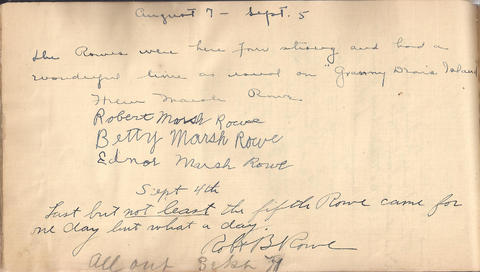 August 7 - Sept. 5
The Rowes were here four strong and had a
wonderful time as usual on "Granny Island
Marsh Rowe
Robert Marsh Rowe
Betty Marsh Rowe
Ednor Marsh Rowe
Sept 4th
Last but not least the fifth Rowe came for
one day but what a day.
Robt B Rowe
All out